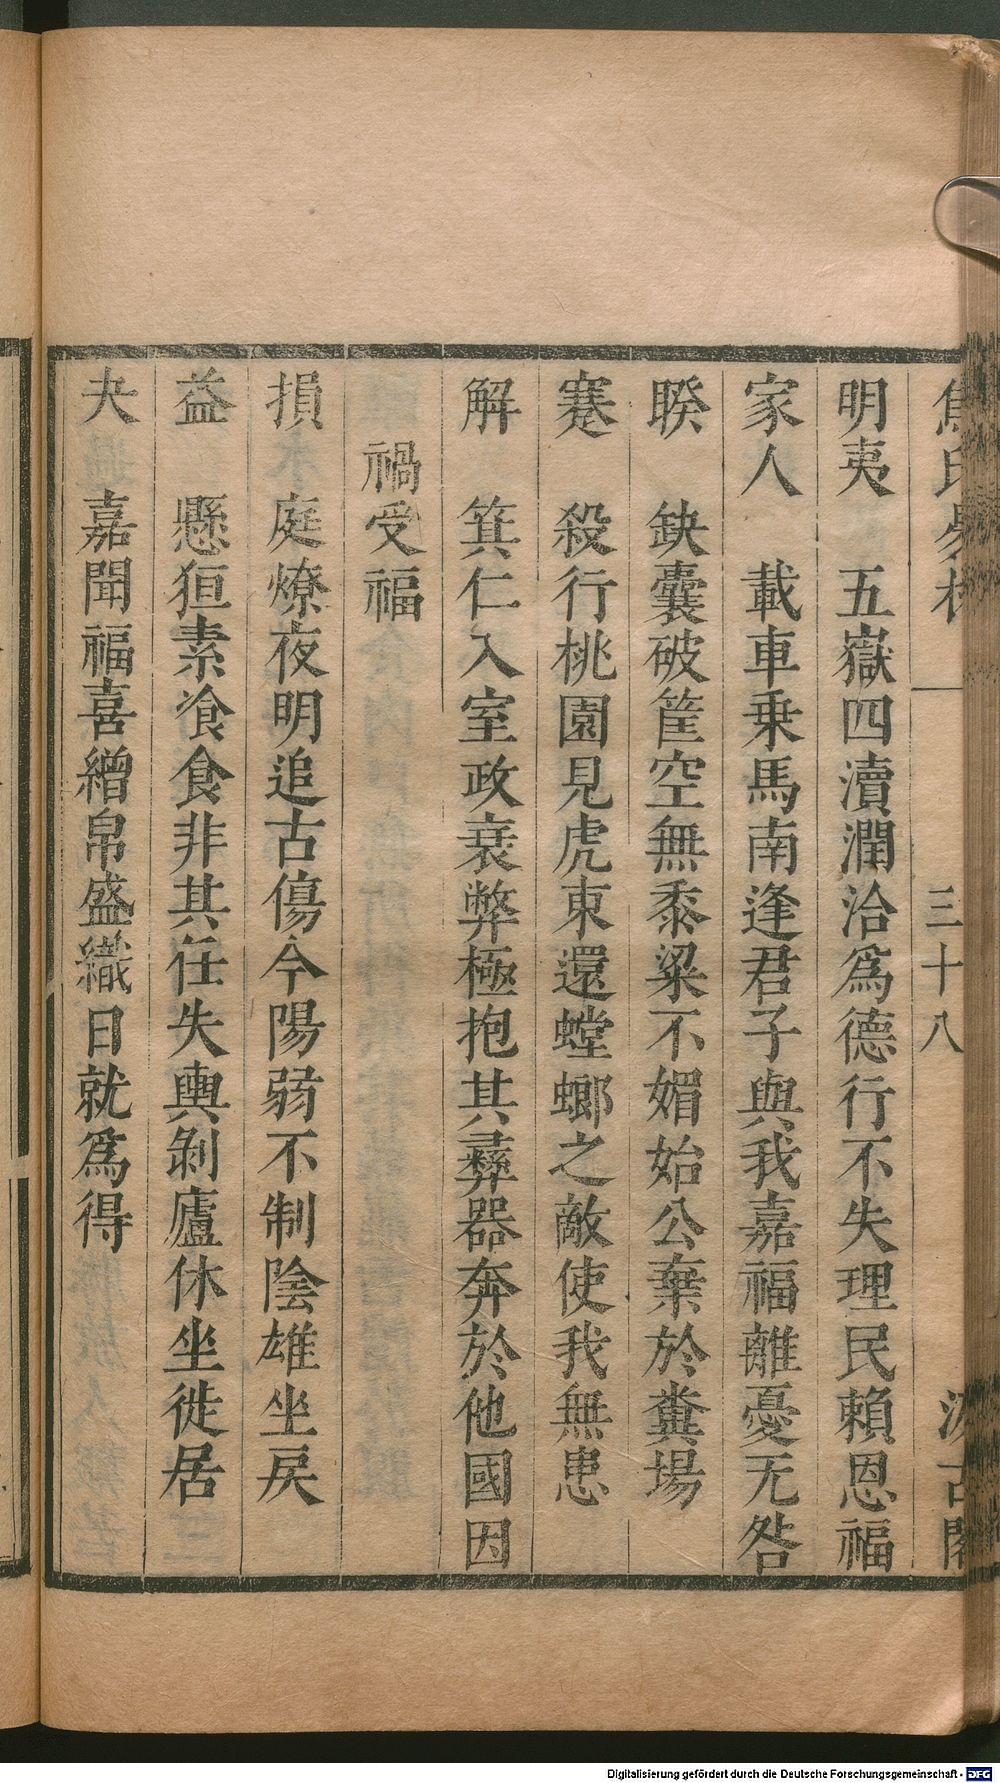 焦氏易林 三十八 汲古閣
明夷 五嶽四瀆潤洽爲德行不失理民賴恩福
家人 載車乗馬南逢君子與我嘉福離憂无咎
睽 缺囊破筐空無黍粱不媚始公棄於糞場
蹇 殺行桃園見虎東還螳螂之敵使我無患
解 箕仁入室政衰弊極抱其彞器奔於他國因
禍受福
損 庭燎夜明追古傷今陽弱不制陰雄坐戾
益 懸狟素飡食非其任失輿剝廬休坐徙居
夬 嘉聞福喜繒帛盛織日就爲得
Digitalisierung gefördert durch die Deutsche Forschungsgemeinschaft - DFG